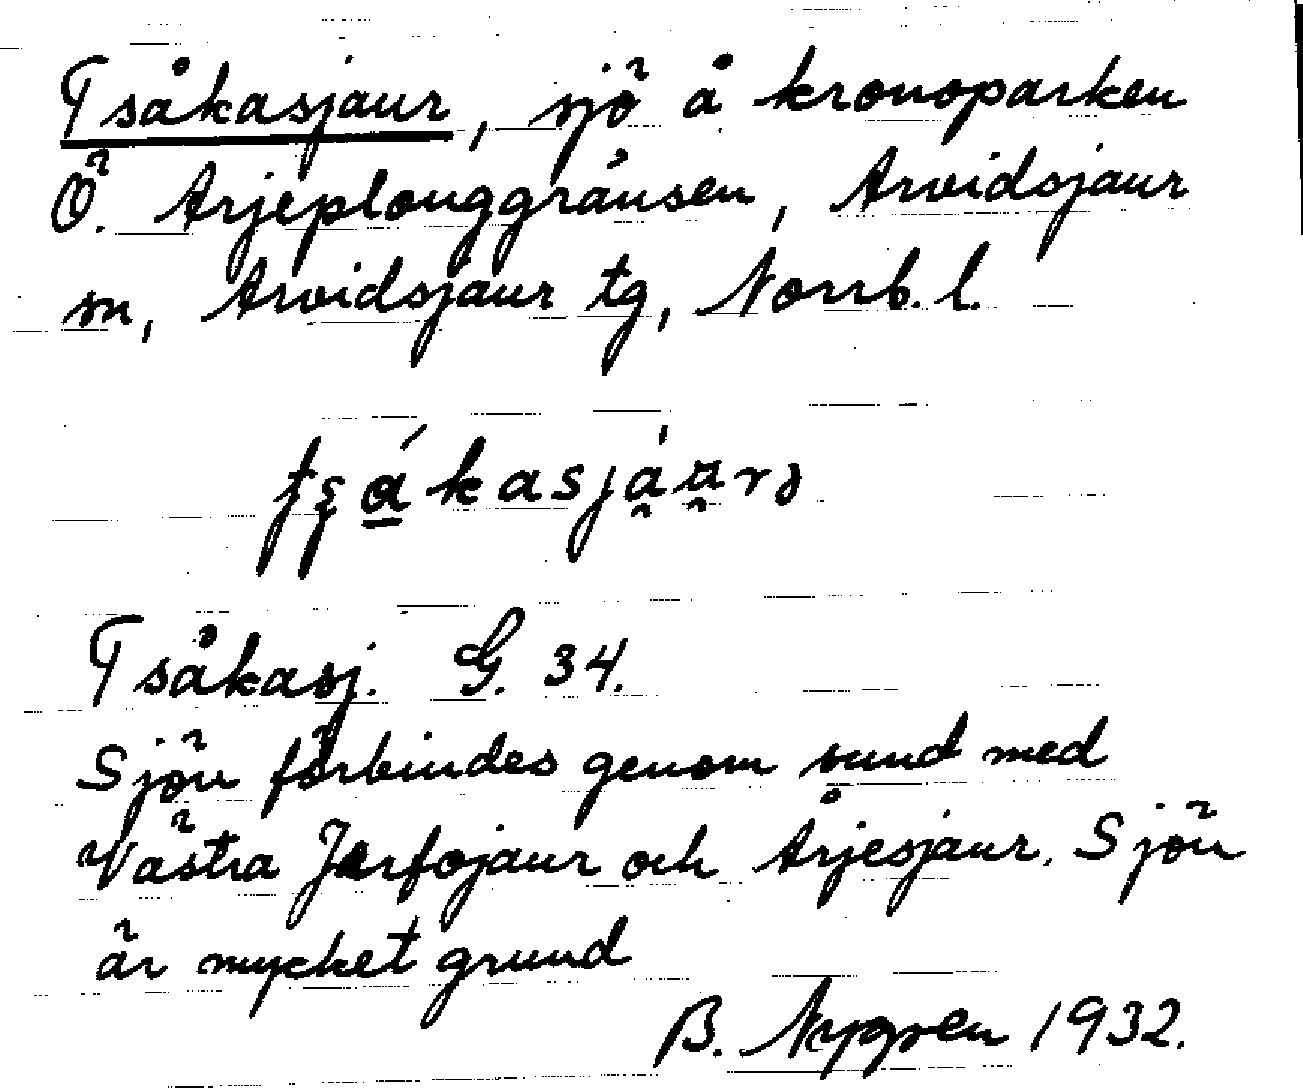 Tsåkasjaur, sjö å kronoparken
Ö. Arjeplouggränsen, Arvidsjaur
sn, Arvidsjaur tg, Norrb. l.
Tsåkasj. G. 34.
Sjön förbindes genom sund med
Västra Jerfojaur och Årjesjaur. Sjön
är mycket grund
B. Nygren 1932.